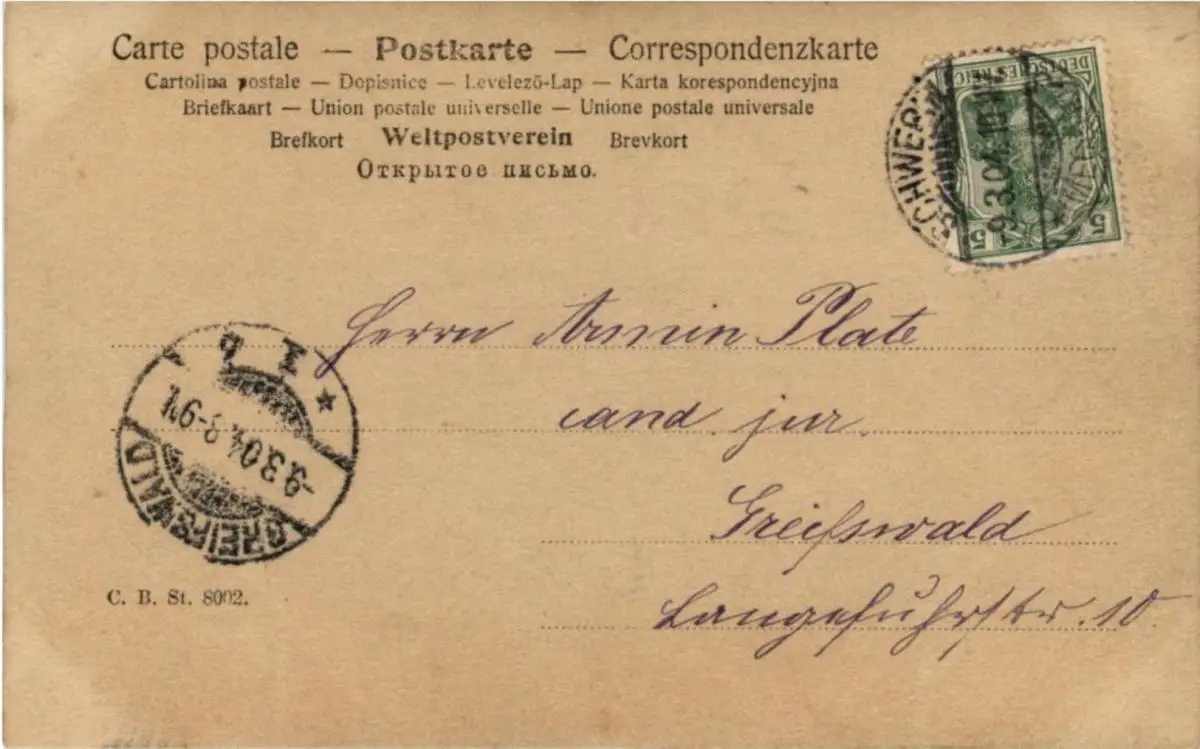 Carte postale — Postkarte — Correspondenzkarte
Cartolina postale — Dopisnice — Levelező-Lap — Karta korespondencyjna
Briefkaart — Union postale universelle — Unione postale universale
Brefkort Weltpostverein Brevkort
Открытое письмо.
DEUTSCHES REICH
5 5
SCHWERIN
9.3.04.
Herrn Armin Plate
cand. jur.
Greifswald
Langefuhrstr. 10
GREIFSWALD
-9.3.04.
C. B. St. 8002.